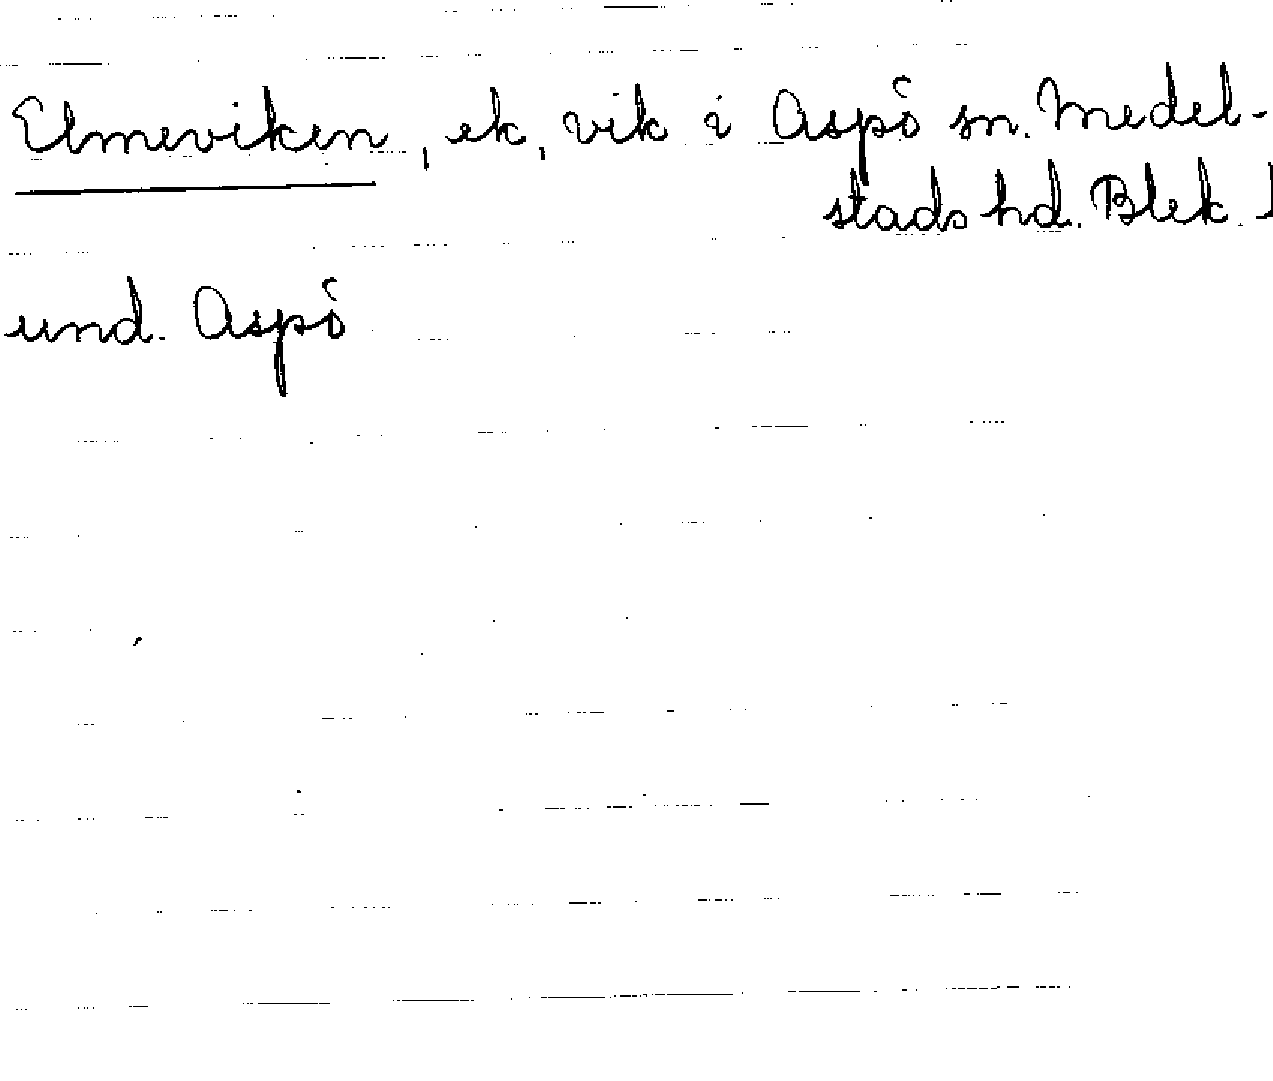 Elmeviken, ek, vik i Aspö sn. Medel-
stads hd. Blek. l
und. Aspö